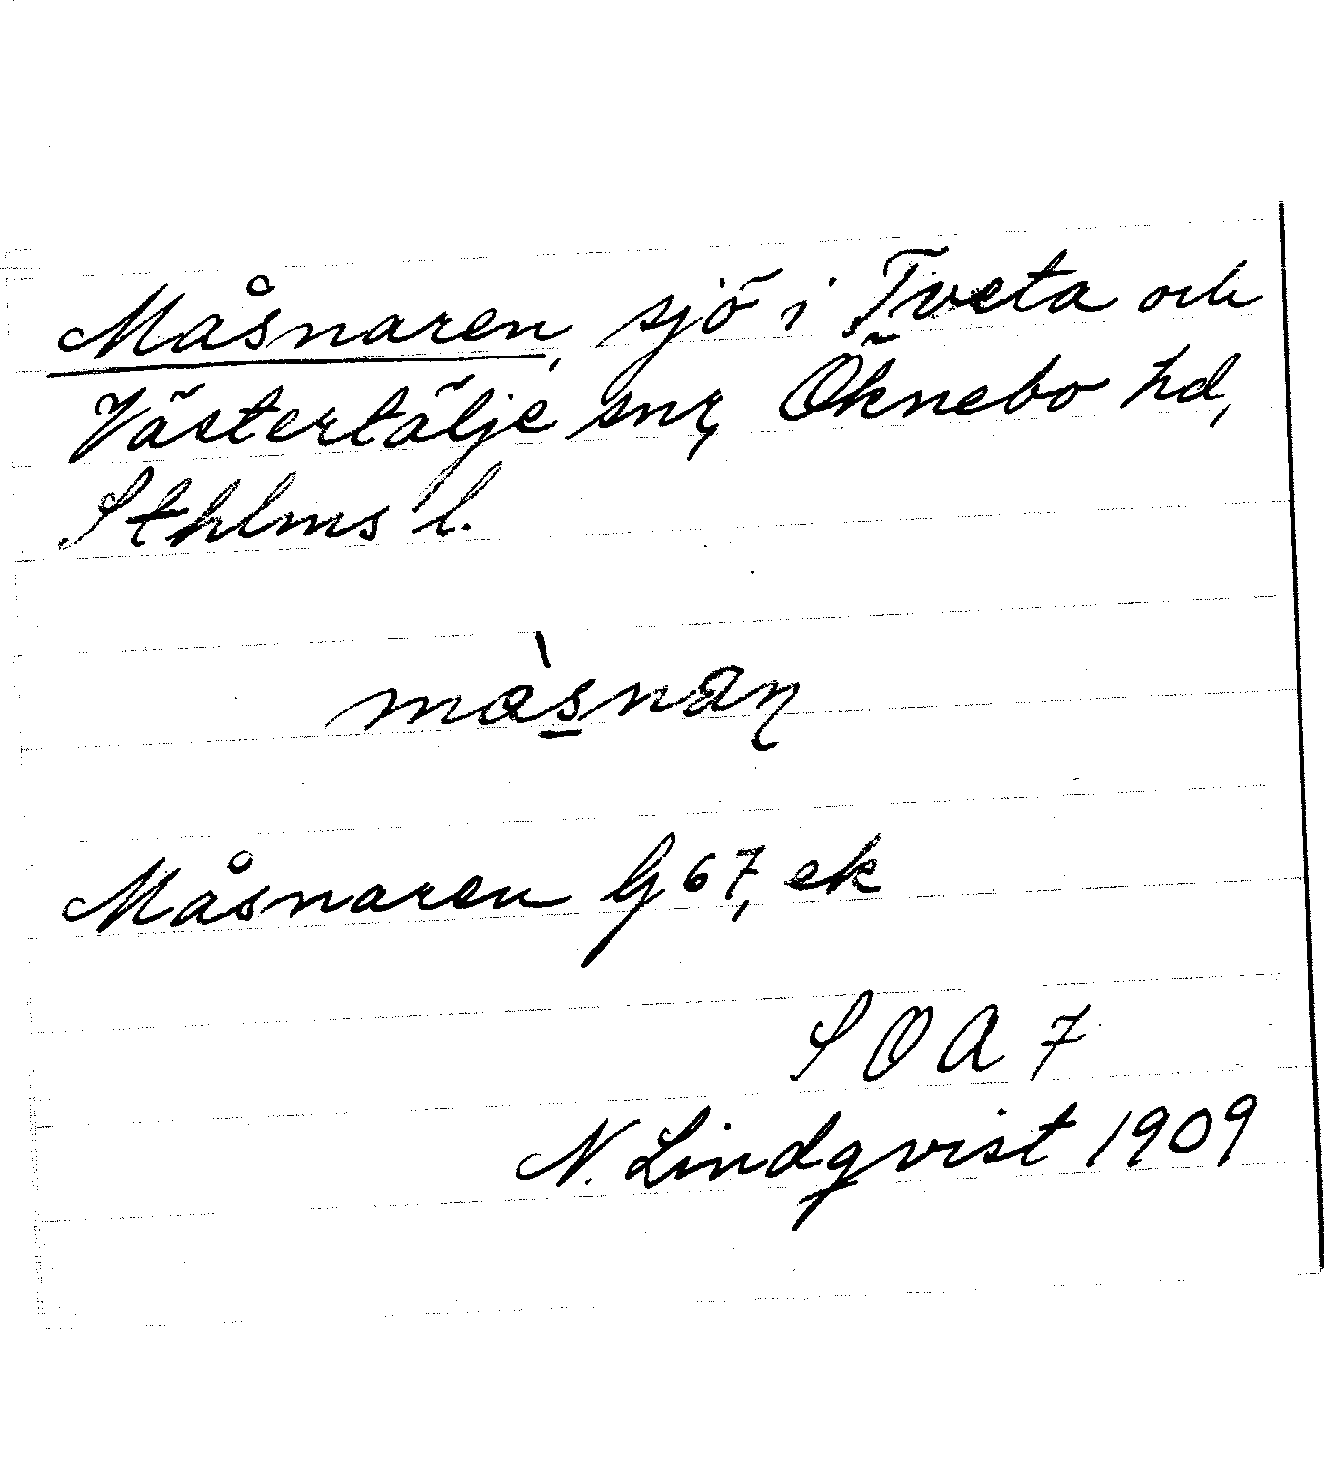 Måsnaren, sjö i Tveta och
Västertälje snr, Öknebo hd,
Sthlms l.
màsnan
Måsnaren G 67, ek
S O A 7
N. Lindqvist 1909